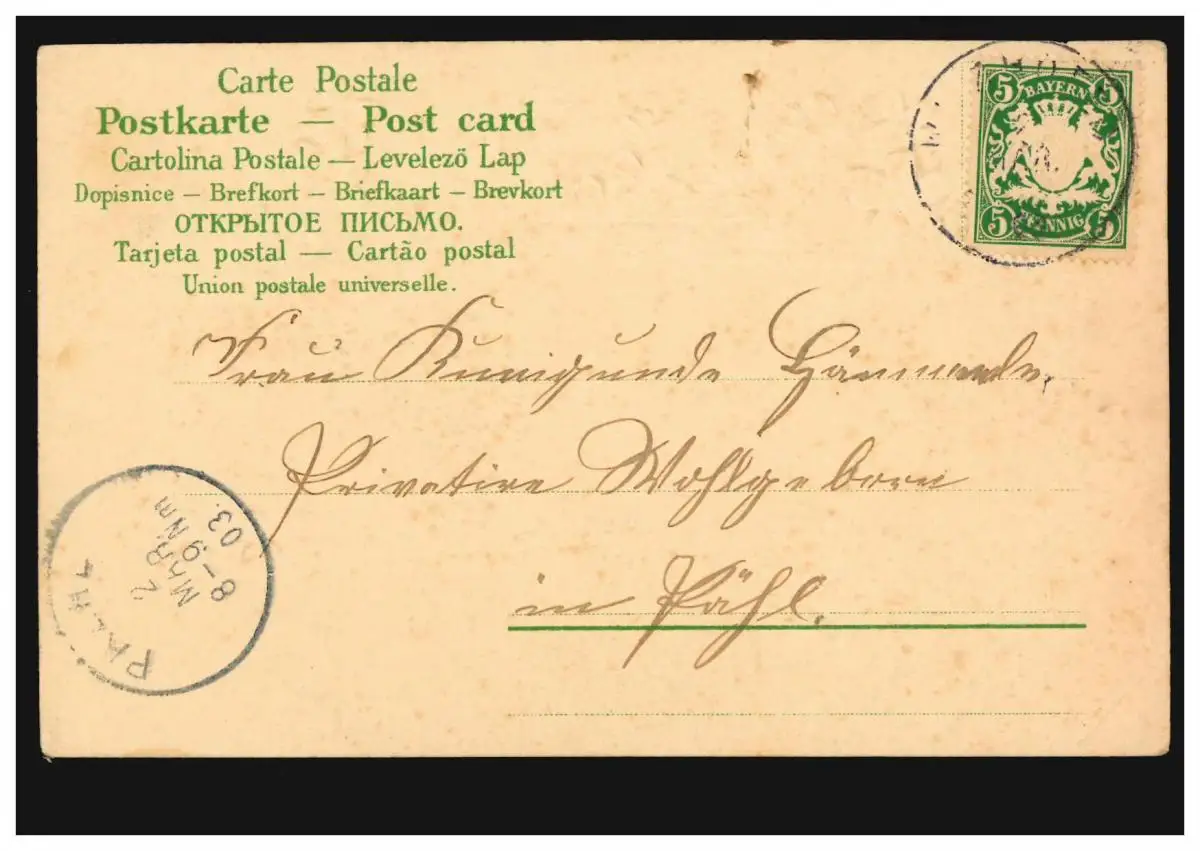 Carte Postale
Postkarte — Post card
Cartolina Postale — Levelező Lap
Dopisnice — Brefkort — Briefkaart — Brevkort
ОТКРЫТОЕ ПИСЬМО.
Tarjeta postal — Cartão postal
Union postale universelle.
5 BAYERN 5
5 PFENNIG 5
Frau Kunigunde
Privatire Wohlgeborn
in Pähl.
PAEHL
2
MAR
8-9 Nm
03.